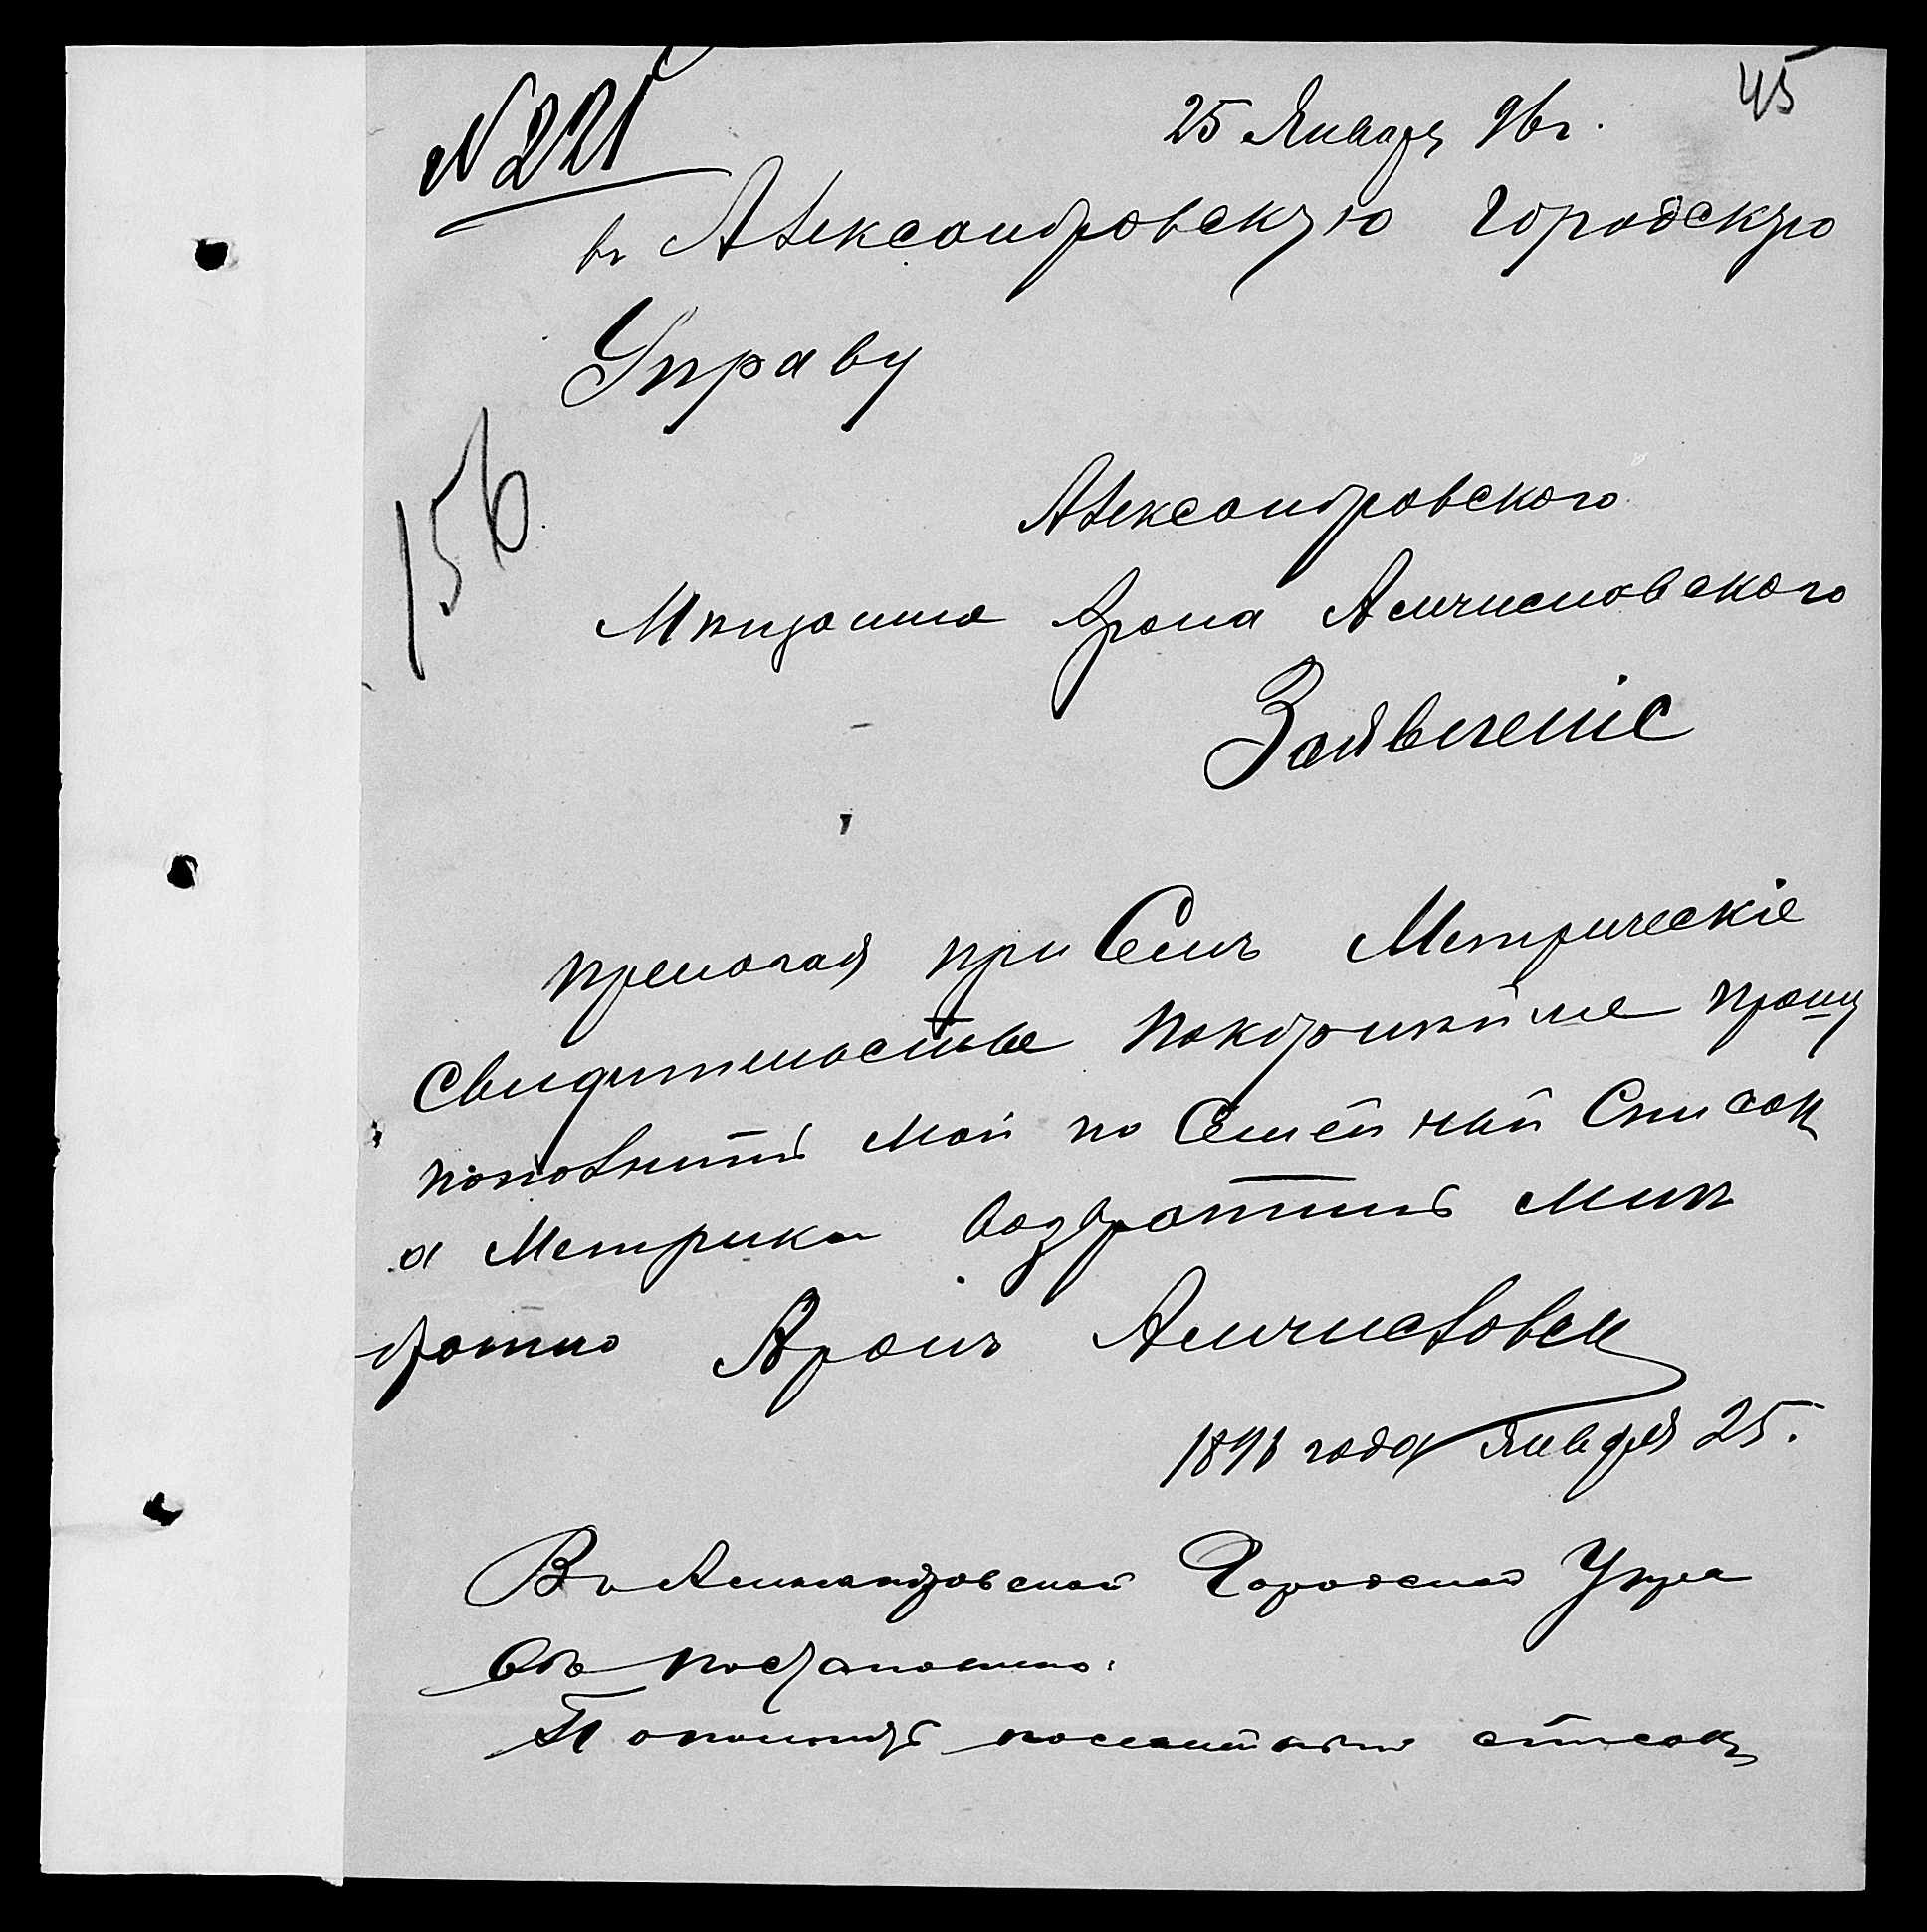 45
№ 221
25 Января 96 г.
въ Александровскую городскую
Управу
156
Александровского
Мѣщанина Арона Алчисловского
Заявленіе
прелогая при Семъ Метрическіе
Свидѣтельства покорнѣйше прошу
пополнить мой по Семейный Список
а Метрики возвратить мнѣ
братно Аронъ Алчисловск
1896 года Января 25.
Въ Александровской Городской Упра
вѣ постановлено:
Пополнить посемейный список